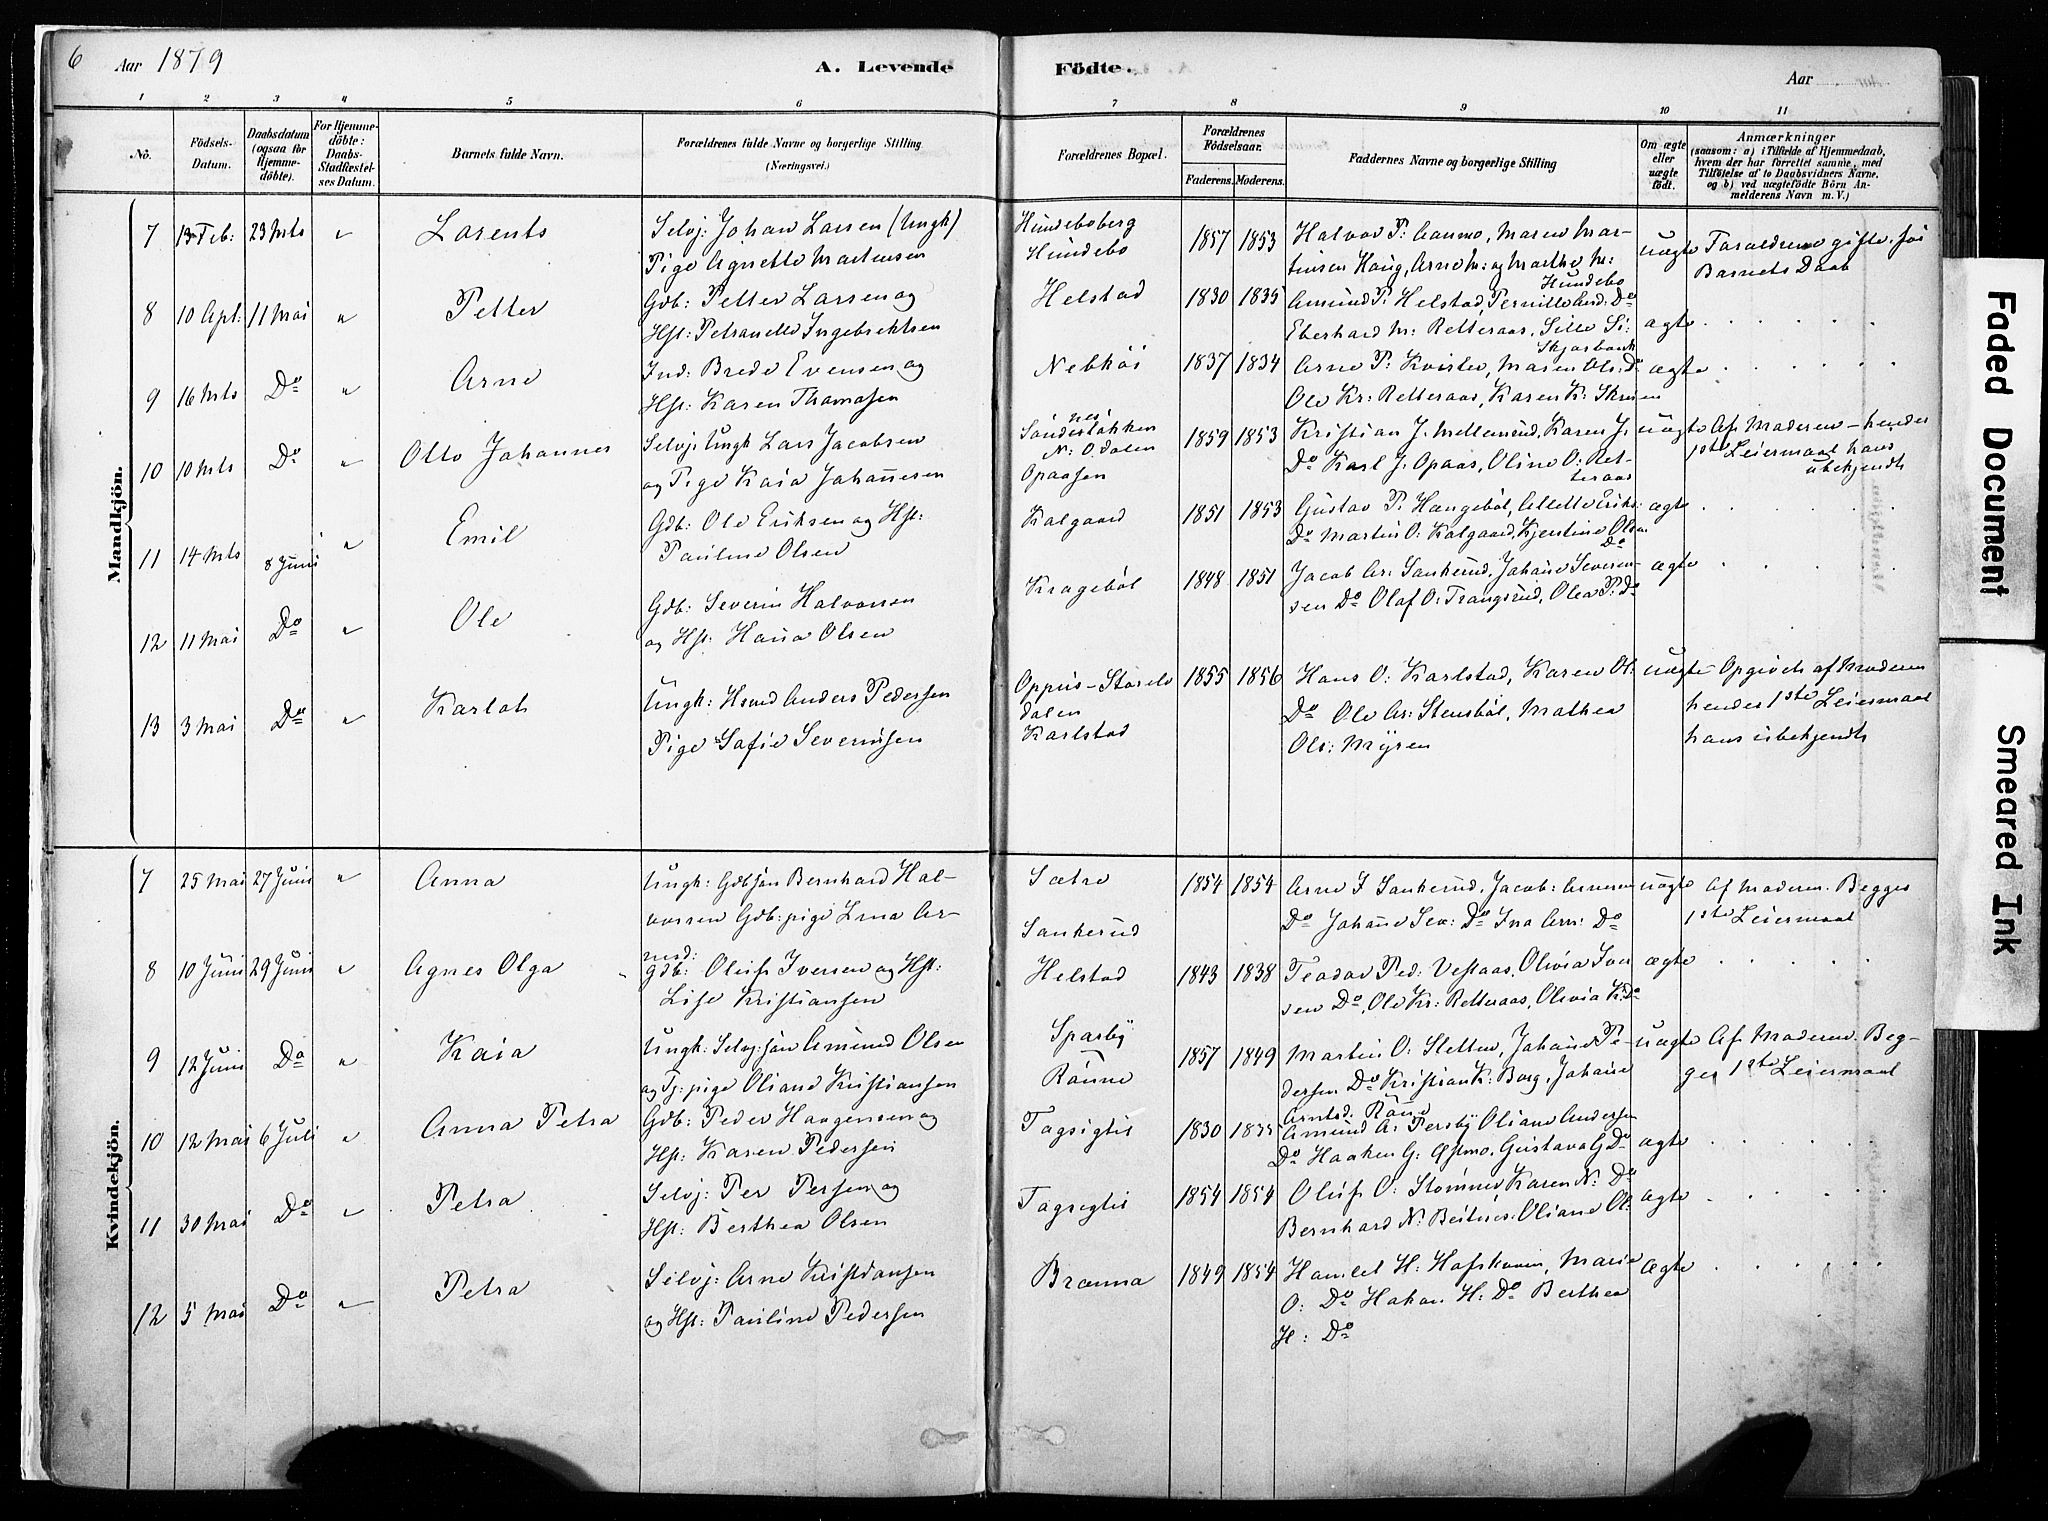 6 Aar 1879 A. Levende Födte. Aar
1 2 3 4 5 6 7 8 9 10 11
No.
Födsels-Datum.
Daabsdatum (ogsaa for Hjemme-döbte).
For Hjemme-döbte: Daabs-Stadfæstel-ses Datum.
Barnets fulde Navn.
Forældrenes fulde Navne og borgerlige Stilling (Næringsvei.)
Forældrenes Bopæl.
Forældrenes Födselsaar.
Faderens. Moderens.
Faddernes Navne og borgerlige Stilling
Om ægte eller uægte födt.
Anmærkninger
(saasom: a) i Tilfælde af Hjemmedaab,
hvem der har forrettet samme, med
Tilföielse af to Daabsvidners Navne,
og b) ved uægtefödte Börn An-
melderens Navn m. V.)
Mandkjön.
7 13 Feb: 23 Mts " Lorents
Selvj: Johan Larsen (Ungk)
Pige Agnette Martensen
Hundeboberg
Hundebo
1857 1853
Halvor P: Aanmo, Maren Mar-
tinsen Haug, Arne M: og Marthe M:
Hundebo
uægte Forældrene gifte för
Barnets Daab
8 10 Apl: 11 Mai " Petter
Gdb: Petter Larsen og
Hst: Petranelle Ingebrektsen
Helstad
1830 1835
Amund P. Helstad, Pernille And: Do
Eberhard M: Retteraas, Sille Si:
Skjæsbæk
ægte
9 16 Mts Do " Arne
Ind: Brede Evensen og
Hst: Karen Thomasen
Nebköi
1837 1834
Arne P: Kvisler, Maren Ols: Do
Ole Kr: Retteraas, Karen K:
ægte
10 10 Mts Do " Otto Johannes
Selvj: Ungk Lars Jacobsen
og Pige Kaia Johannesen
N: Odalen
Opaasen
1859 1853
Kristian J. Mellemrud, Karen J.
Do Karl J. Opaas, Oline O: Ret-
teraas
uægte Af Moderen – hendes
1ste Leiermaal hans
ubekjendt
11 14 Mts 8 Juni " Emil
Gdb: Ole Eriksen og Hst:
Pauline Olsen
Kalgaard
1851 1853
Gustav P. Haugeböl, Allette Eriks:
Do Martin O: Kalgaard, Kjerstine Olsen
Do
ægte
12 11 Mai Do " Ole
Gdb: Severin Halvorsen
og Hst: Hana Olsen
Krageböl
1848 1851
Jacob Ar: Sankerud, Johane Severin-
sen Do Olaf O: Trangsrud, Olea P: Do
ægte
13 3 Mai Do " Karlot
Ungk: Hsmd Anders Pedersen
Pige Sofie Severinsen
Oppus – Storelv
dalen
Karlstad
1855 1856
Hans O: Karlstad, Karen Ol:
Do Ole Ar: Stensböl, Mathea
Ols: Myren
uægte Opgivet af Moderen
hendes 1ste Leiermaal
hans ubekjendt
Kvindekjön.
7 25 Mai 27 Juni " Anna
Ungk: Gdbsön Bernhard Hal-
vorsen Gdb:pige Lina Ar-
nesd:
Sætre
Sankerud
1854 1854
Arne J Sankerud, Jacob: Arnesen
Do Johane Sev: Do Ina Arn: Do
uægte Af Moderen. Begges
1ste Leiermaal
8 10 Juni 29 Juni " Agnes Olga
Gdb: Oluf Iversen og Hst:
Lise Kristiansen
Helstad
1843 1838
Teodor Ped: Vestaas, Olivia Iver
sen Do, Ole Kr: Retteraas, Olivia K: Do
ægte
9 12 Juni Do " Kaia
Ungk: Selvj:sön Amund Olsen
og Tj:pige Oliane Kristiansen
Sparby
Rönne
1857 1849
Martin O: Sletten, Johane Pe-
dersen Do Kristian K: Borg, Johane
Arntsd. Röne
uægte Af Moderen. Beg-
ges 1ste Leiermaal
10 12 Mai 6 Juli " Anna Petra
Gdb: Peder Haagensen og
Hst: Karen Pedersen
Fagsigtis
1830 1835
Amund A: Persby Oliane Andersen
Do Haaken G: Opmo, Gustava G Do
ægte
11 30 Mai Do " Petra
Selvj: Per Persen og
Hst: Berthea Olsen
Fagsigtis
1854 1854
Oluf O: Stömner Karen N: Do
Bernhard N: Beitnes. Oliane Ol:
ægte
12 5 Mai Do " Petra
Selvj: Arne Kristiansen
og Hst: Pauline Pedersen
Brænna
1849 1854
Hamlet H: Hafskoven, Marie
O: Do Hakan H: Do Berthea
H: Do
ægte
Faded Document
Smeared Ink